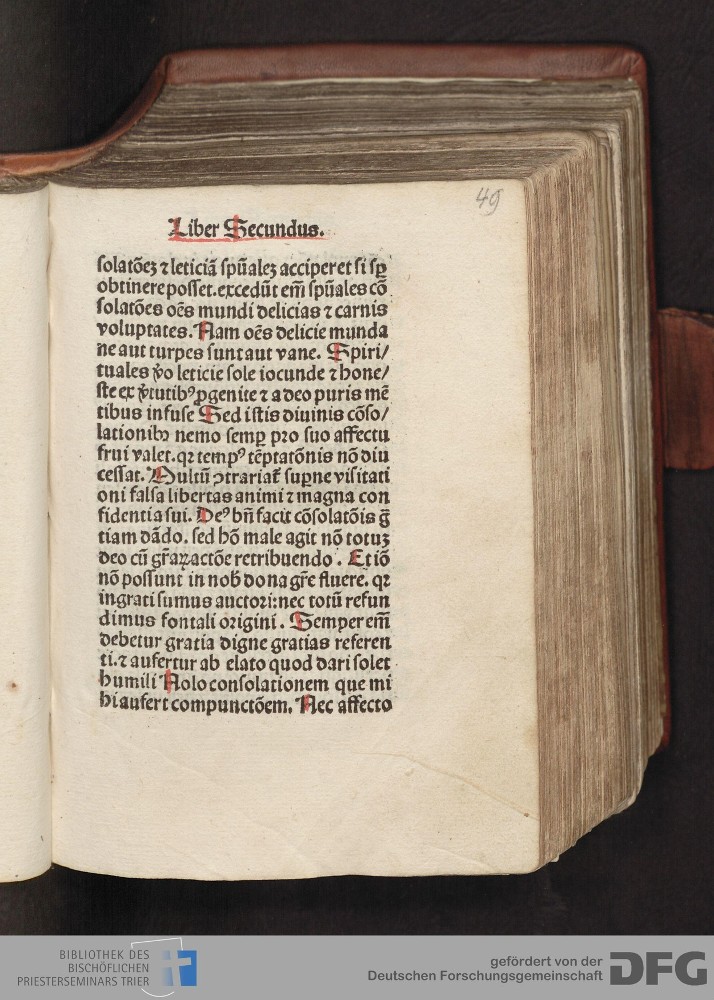 49
Liber Secundus.
solatōeꝫ ⁊ leticiā spūaleꝫ acciperet si sꝑ
obtinere posset. excedūt em̄ spūales cō
solatōes oēs mundi delicias ⁊ carnis
voluptates. Nam oēs delicie munda
ne aut turpes sunt aut vane. Spiri/
tuales v̄o leticie sole iocunde ⁊ hone/
ste ex v̄tutibꝰ ꝓgenite ⁊ a deo puris mē
tibus infuse Sed istis diuinis cōso/
lationibꝫ nemo semꝑ pro suo affectu
frui valet. qꝛ tempꝰ tēptatōnis nō diu
cessat. Multū ↄ̈trariat̄ suꝑne visitati
oni falsa libertas animi ⁊ magna con
fidentia sui. Deꝰ bn̄ facit cōsolatōis ḡ
tiam dādo. sed hō male agit nō totuꝫ
deo cū gr̄aꝝ actōe retribuendo. Et iō
nō possunt in nob̄ dona gr̄e fluere. qꝛ
ingrati sumus auctori: nec totū refun
dimus fontali origini. Semper em̄
debetur gratia digne gratias referen
ti. ⁊ aufertur ab elato quod dari solet
humili Nolo consolationem que mi
hi aufert compunctōem. Nec affecto
BIBLIOTHEK DES
BISCHÖFLICHEN
PRIESTERSEMINARS TRIER
gefördert von der
Deutschen Forschungsgemeinschaft
DFG